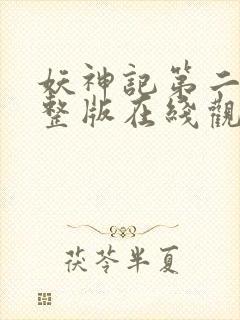 妖神記第二
整版在綫觀
茯苓半夏